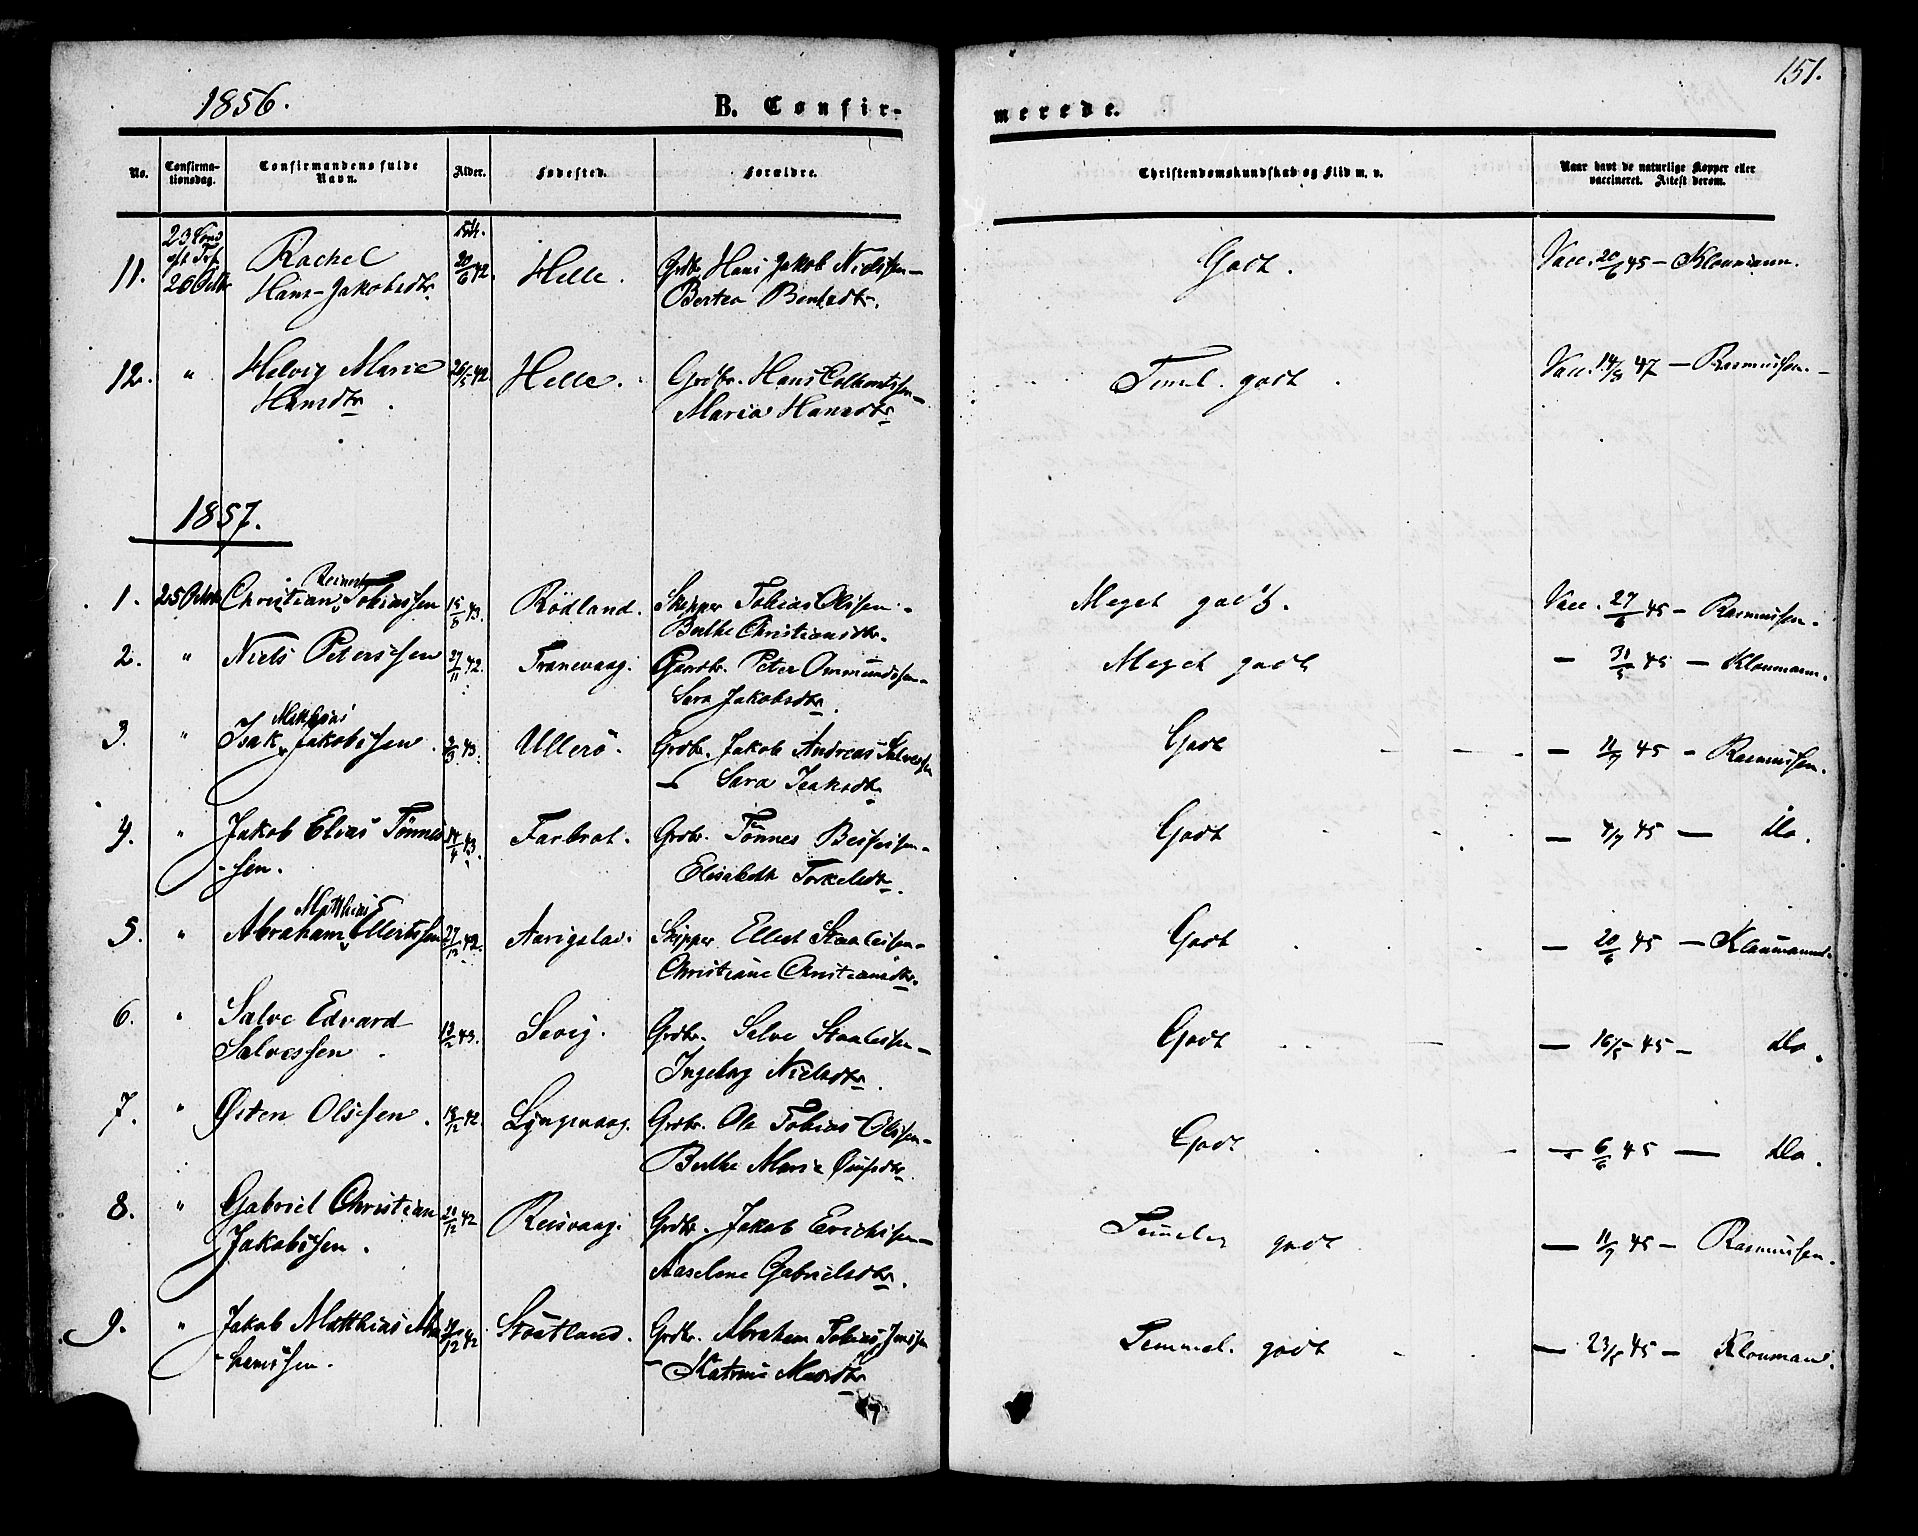 1856.
B. Confir-
merede.
151.
No.
Confirma-
tionsdag.
Confirmandens fulde
Navn.
Alder.
Fødested.
Forældre.
Christendomskundskab og Flid m. v.
Naar havt de naturlige Kopper eller
vaccineret. Attest derom.
11.
26 Octbr
Rachel
Hans-Jakobsdtr.
20/6 42.
Helle.
Grdbr Hans Jakob Nielssen –
Bertea Bentsdtr.
Godt.
Vacc. 20/6 45 – Kloumann.
12.
"
Helvig Marie
Hansdtr.
26/5 42
Helle.
Grdbr. Hans
Maria Hansdtr
Temmel. godt
Vacc. 14/8 47 – Rasmussen. –
1857.
1.
25 Octobr
Christian Reinert Tobiassen
15/8 43.
Rödland.
Skipper Tobias Olssen –
Berthe Christiansdtr.
Meget godt.
Vacc. 27/6 45 – Rasmussen.
2.
"
Niels Peterssen
27/11 42.
Tranevaag.
Gaardbr. Peter Ommundssen –
Sara Jakobsdtr.
Meget godt
– 31/5 45 – Kloumann.
3.
"
Isak Matthias Jakobssen.
2/3 43.
Ullerö.
Grdbr. Jakob Andreas Salvessen
– Sara Isaksdtr
Godt
– 11/7 45 – Rasmussen.
4.
"
Jakob Elias Tönnes
-sen.
14/4 43.
Farbrot.
Grdbr. Tönnes Beressen –
Elisabeth Torkelsdtr.
Godt
– 4/7 45 – Do.
5.
"
Abraham Matthias Ellertssen
27/12 42.
Aarigstad.
Skipper Ellert Staalessen –
Christiane Christiansdtr.
Godt
– 20/6 45 – Kloumann.
6.
"
Salve Edvard
Salvessen.
12/2 43.
Sevig.
Grdbr. Salve Staalessen –
Ingeborg Nielsdtr.
Godt
– 16/5 45 – Do.
7.
"
Østen Olssen.
18/12 42.
Lyngsvaag.
Grdbr. Ole Tobias Olssen –
Berthe Marie
Godt
– 6/6 45 – Do.
8.
"
Gabriel Christian
Jakobssen.
21/12 42
Reisvaag.
Grdbr. Jakob Erichssen –
Aaselene Gabrielsdtr.
Temmel. godt
– 11/7 45 – Rasmussen.
9.
"
Jakob Matthias Abra
-hamssen.
Stoutland.
Grdbr. Abraham Tobias Jenssen
– Katrine
Temmel. godt
– 23/5 45 – Klouman.